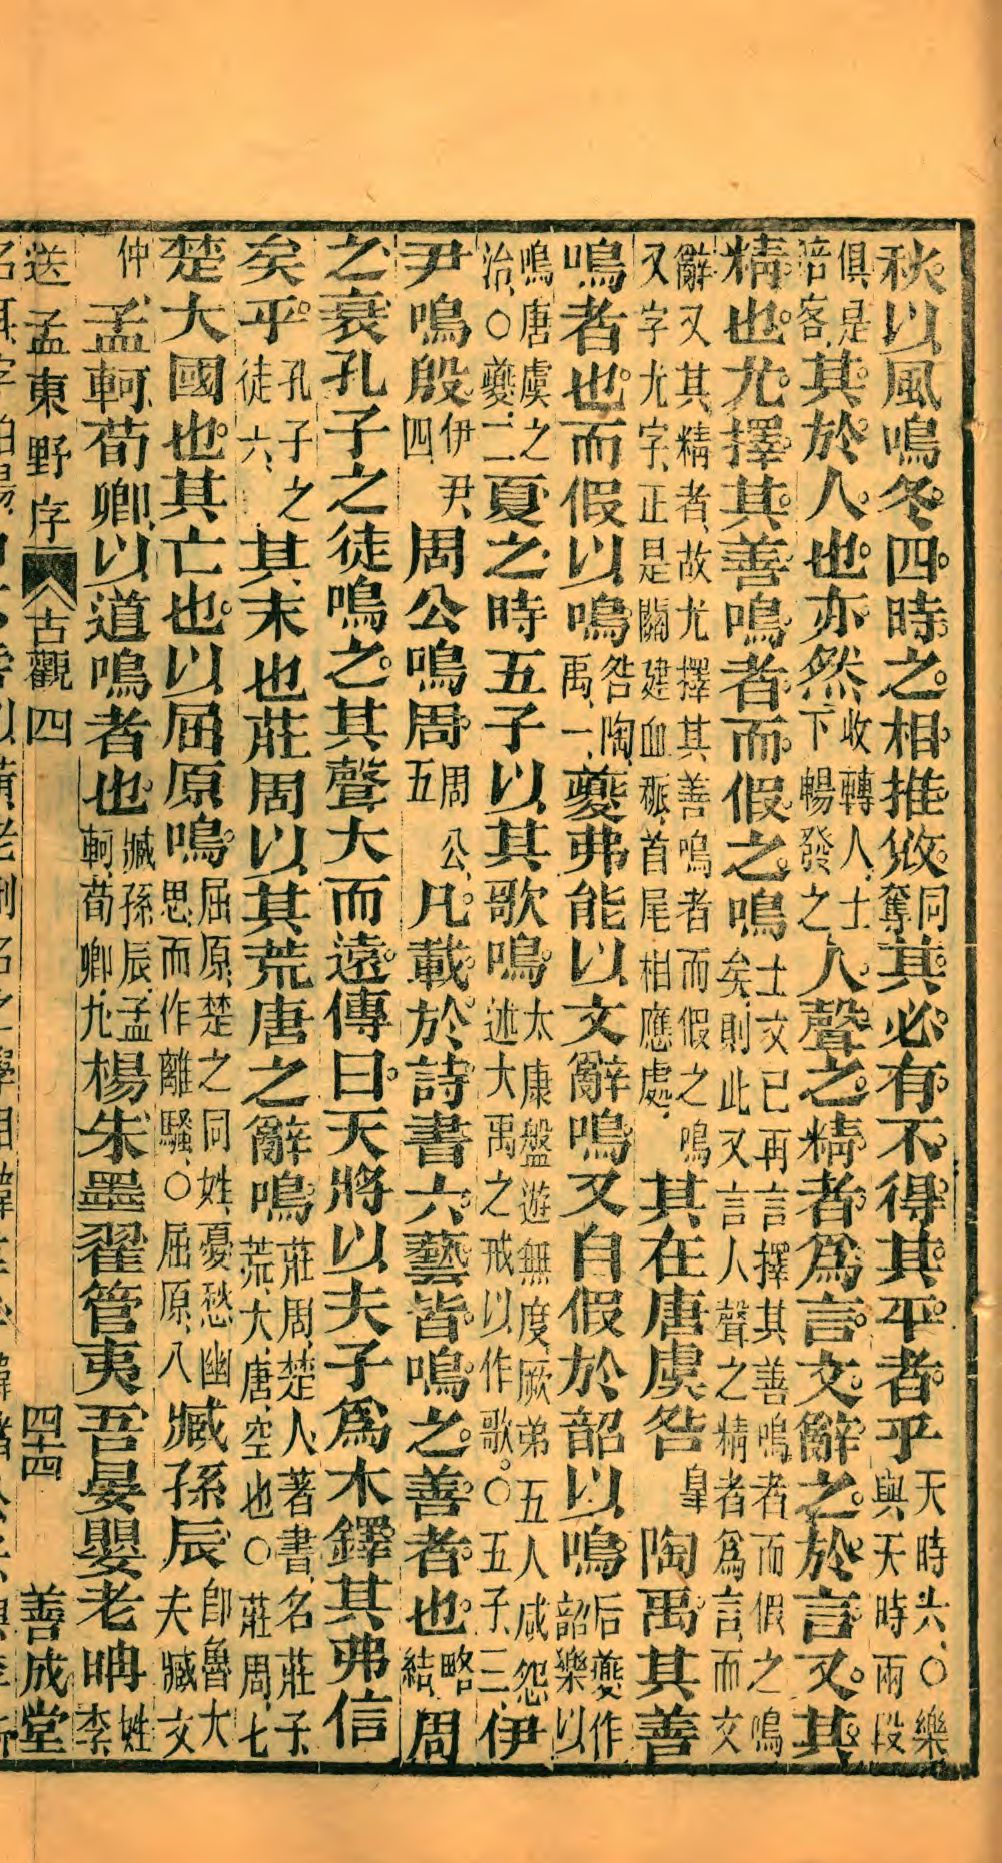 秋以風鳴冬四時之相推敚同奪其必有不得其平者乎天時六○樂與天時兩段
俱是陪客其於人也亦然收轉人士下暢發之人聲之精者爲言文辭之於言又其
精也尤擇其善鳴者而假之鳴士文已再言擇其善鳴者而假之鳴矣則此又言人聲之精者爲言而文
辭又其精者故尤擇其善鳴者而假之鳴又字尤字正是關建血脈首尾相應處其在唐虞咎皐陶禹其善
鳴者也而假以鳴咎陶禹一夔弗能以文辭鳴又自假於韶以鳴后夔作韶樂以
鳴唐虞之治○夔二夏之時五子以其歌鳴太康盤遊無度厥弟五人咸怨述大禹之戒以作歌○五子三伊
尹鳴殷伊尹四周公鳴周周公五凡載於詩書六藝皆鳴之善者也略結周
之衰孔子之徒鳴之其聲大而遠傳曰天將以夫子爲木鐸其弗信
矣乎孔子之徒六其末也莊周以其荒唐之辭鳴莊周楚人著書名莊子荒大唐空也○莊周七
楚大國也其亡也以屈原鳴屈原楚之同姓憂愁幽思而作離騷○屈原八臧孫辰卽魯大夫臧文
仲孟軻荀卿以道鳴者也臧孫辰孟軻荀卿九楊朱墨翟管夷吾晏嬰老聃姓李
送孟東野序 古觀四 四十四 善成堂